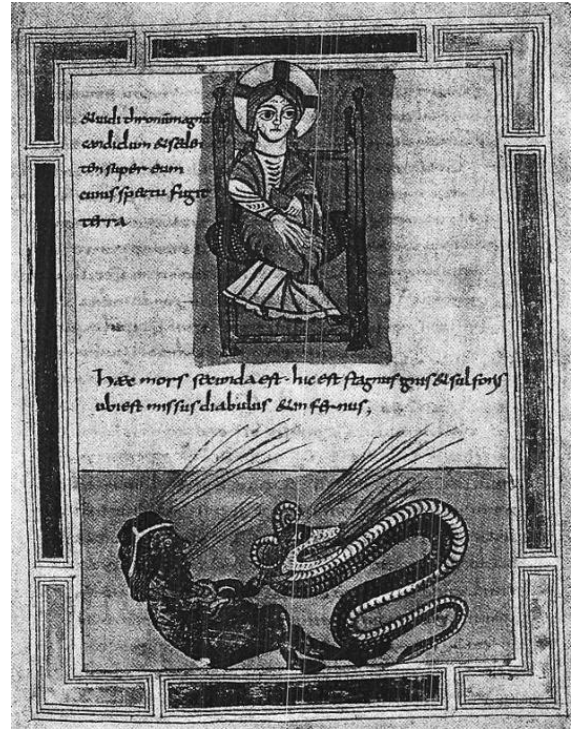 & uidi thronū magnū
candidum & seden
tem super eum
cuius spectu fugit
terra
hæc mors secunda est · hic est stagnus ignis & sulforis
ubi est missus diabulus & infernus,